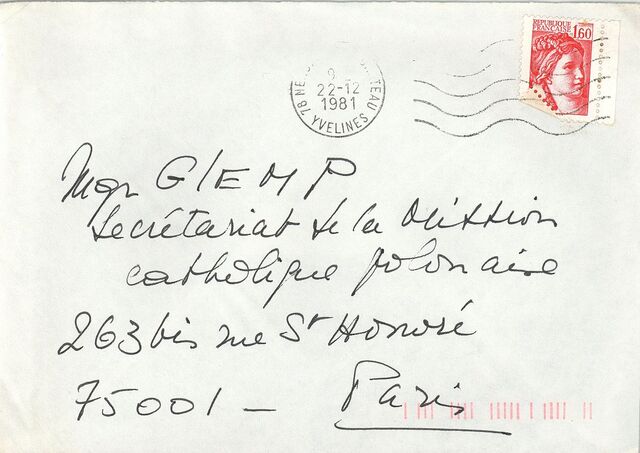 RÉPUBLIQUE
FRANÇAISE 1,60
22-12
1981
78 NE TEAU
YVELINES
Mgr GlEMP
Secrétariat de la Mission
catholique polonaise
263 bis rue St Honoré
75001 — Paris